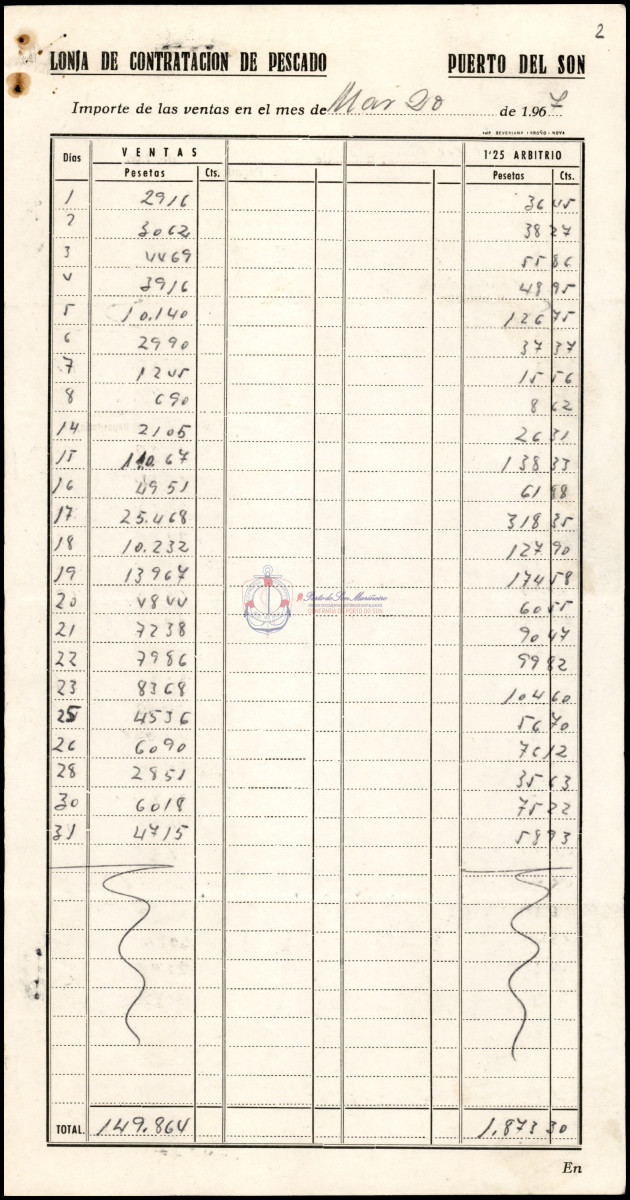 2
LONJA DE CONTRATACION DE PESCADO PUERTO DEL SON
Importe de las ventas en el mes de Marzo de 1.967
Días VENTAS 1'25 ARBITRIO
Pesetas Cts. Pesetas Cts.
1 2916 36 45
2 3062 38 27
3 4469 55 86
4 3916 48 95
5 10.140 126 75
6 2990 37 37
7 1245 15 56
8 690 8 62
14 2105 26 31
15 110.67 138 33
16 4951 61 88
17 25.468 318 35
18 10.232 127 90
19 13967 174 58
20 4844 60 55
21 7238 90 47
22 7986 99 82
23 8368 104 60
25 4536 56 70
26 6090 76 12
28 2851 35 63
30 6018 75 22
31 4715 58 93
Porto do Son Mariñeiro
CONFRARÍA DE PORTO DO SON
TOTAL. 149.864 1.873 30
En